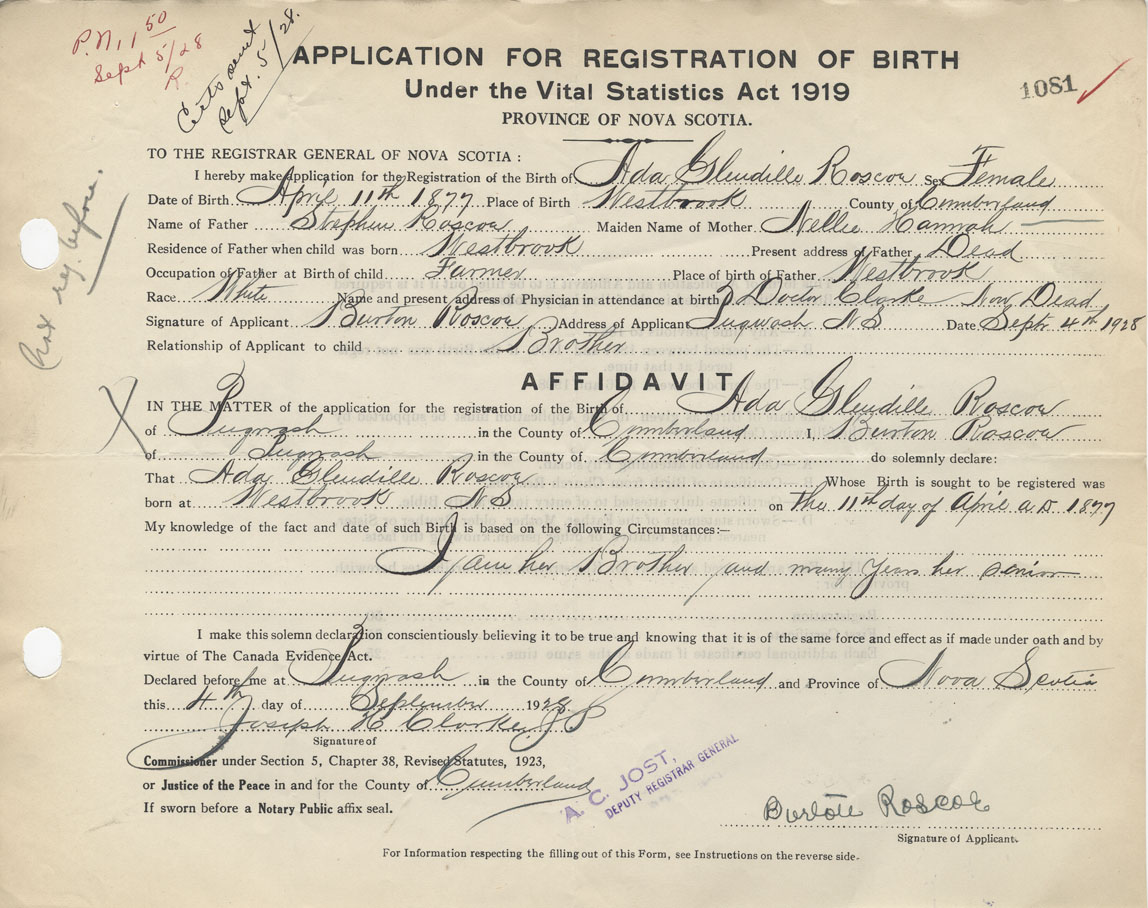 P.N. 1 50
Sept 5/28
R.
Certs sent
Sept. 5/28.
APPLICATION FOR REGISTRATION OF BIRTH
Under the Vital Statistics Act 1919
1081
PROVINCE OF NOVA SCOTIA.
Not reg. before.
TO THE REGISTRAR GENERAL OF NOVA SCOTIA :
I hereby make Application for the Registration of the Birth of Ada Glendille Roscoe Sex Female
Date of Birth April 11th 1877 Place of Birth Westbrook County of Cumberland
Name of Father Stephen Roscoe Maiden Name of Mother Nellie Hannah
Residence of Father when child was born Westbrook Present address of Father Dead
Occupation of Father at Birth of child Farmer Place of birth of Father Westbrook
Race White Name and present address of Physician in attendance at birth Doctor Clarke Now Dead
Signature of Applicant Burton Roscoe Address of Applicant Pugwash N S Date Septr 4th 1928
Relationship of Applicant to child Brother
AFFIDAVIT
X
IN THE MATTER of the application for the registration of the Birth of Ada Glendille Roscoe
of Pugwash in the County of Cumberland I, Burton Roscoe
of Pugwash in the County of Cumberland do solemnly declare:
That Ada Glendille Roscoe Whose Birth is sought to be registered was
born at Westbrook N S on the 11th day of April A D 1877
My knowledge of the fact and date of such Birth is based on the following Circumstances:—
I am her Brother and many years her senior
I make this solemn declaration conscientiously believing it to be true and knowing that it is of the same force and effect as if made under oath and by
virtue of The Canada Evidence Act.
Declared before me at Pugwash in the County of Cumberland and Province of Nova Scotia
this 4th day of September 1928
Joseph H Clarke J P
Signature of
Commissioner under Section 5, Chapter 38, Revised Statutes, 1923,
or Justice of the Peace in and for the County of Cumberland
If sworn before a Notary Public affix seal.
A. C. JOST,
DEPUTY REGISTRAR GENERAL
Burton Roscoe
Signature of Applicant.
For Information respecting the filling out of this Form, see Instructions on the reverse side.